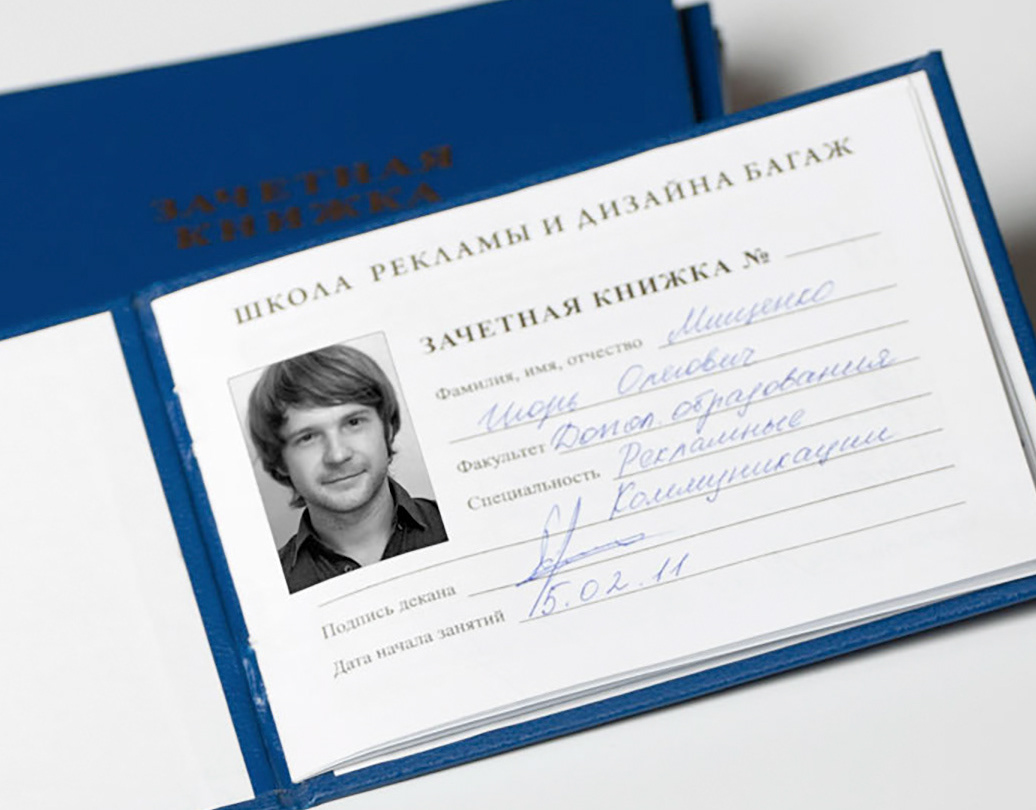 ЗАЧЕТНАЯ
КНИЖКА
ШКОЛА РЕКЛАМЫ И ДИЗАЙНА БАГАЖ
ЗАЧЕТНАЯ КНИЖКА №
Фамилия, имя, отчество Мищенко
Игорь Олегович
Факультет Допол. образования
Специальность Рекламные
Коммуникации
Подпись декана
Дата начала занятий 15.02.11